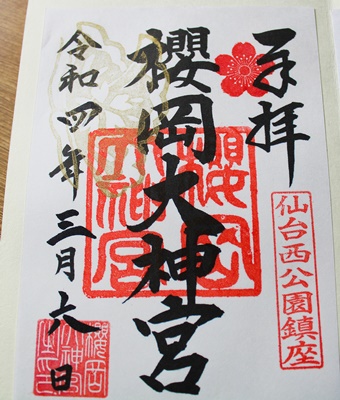 奉拝
仙台西公園鎮座
櫻岡大神宮
櫻岡大神宮
令和四年三月六日